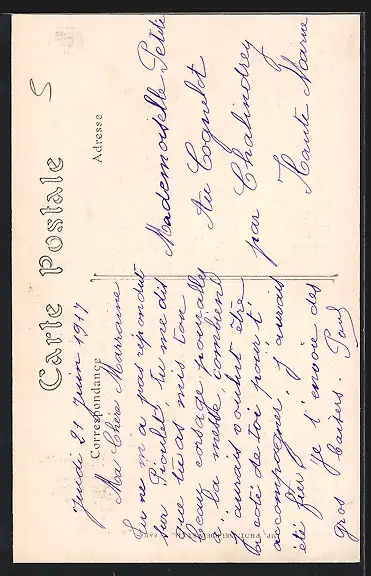 Carte Postale
Correspondance
Adresse
Jeudi 21 Juin 1917
Ma Chère Marraine
Tu ne m'a pas répondu
sur Pioulet, tu me dis
que tu as mis ton
beau corsage pour aller
à la messe, combien
j'aurais voulut être
à coté de toi pour t'
accompagner, j'aurais
été fier, je t'envoie des
gros baisers. Paul
Mademoiselle Petite
Au Coquelot
par Chalindrey
Haute Marne